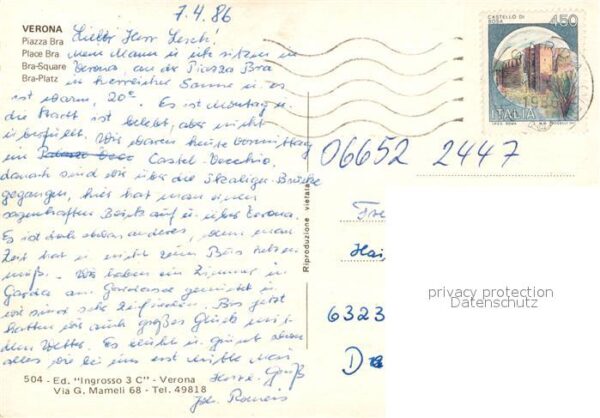 7.4.86
VERONA
Piazza Bra
Place Bra
Bra-Square
Bra-Platz
Lieber Herr
mein Mann u. ich sitzen in
Verona an der Piazza Bra
in herrlicher Sonne u. es
ist warm, 20°. Es ist Montag u.
die Stadt ist belebt, aber nicht
überfüllt. Wir waren heute Vormittag
im Castel Vecchio,
danach sind wir über die Skaliger-Brücke
gegangen, hier hat man einen
sagenhaften Blick auf u. über Verona.
Es ist doch etwas anderes, wenn man
Zeit hat u. nicht zum Bus rasen
muß. Wir haben ein Zimmer in
Garda am Gardasee gemietet u.
wir sind sehr zufrieden. Bis jetzt
hatten wir auch großes Glück mit
dem Wetter. Es blüht u. grünt schon
alles wie bei uns erst Mitte Mai
Herzl. Gruß
CASTELLO DI
ROSA
450
ITALIA
06652 2447
Riproduzione vietata
6323
D
privacy protection
Datenschutz
504 - Ed. "Ingrosso 3 C" - Verona
Via G. Mameli 68 - Tel. 49818